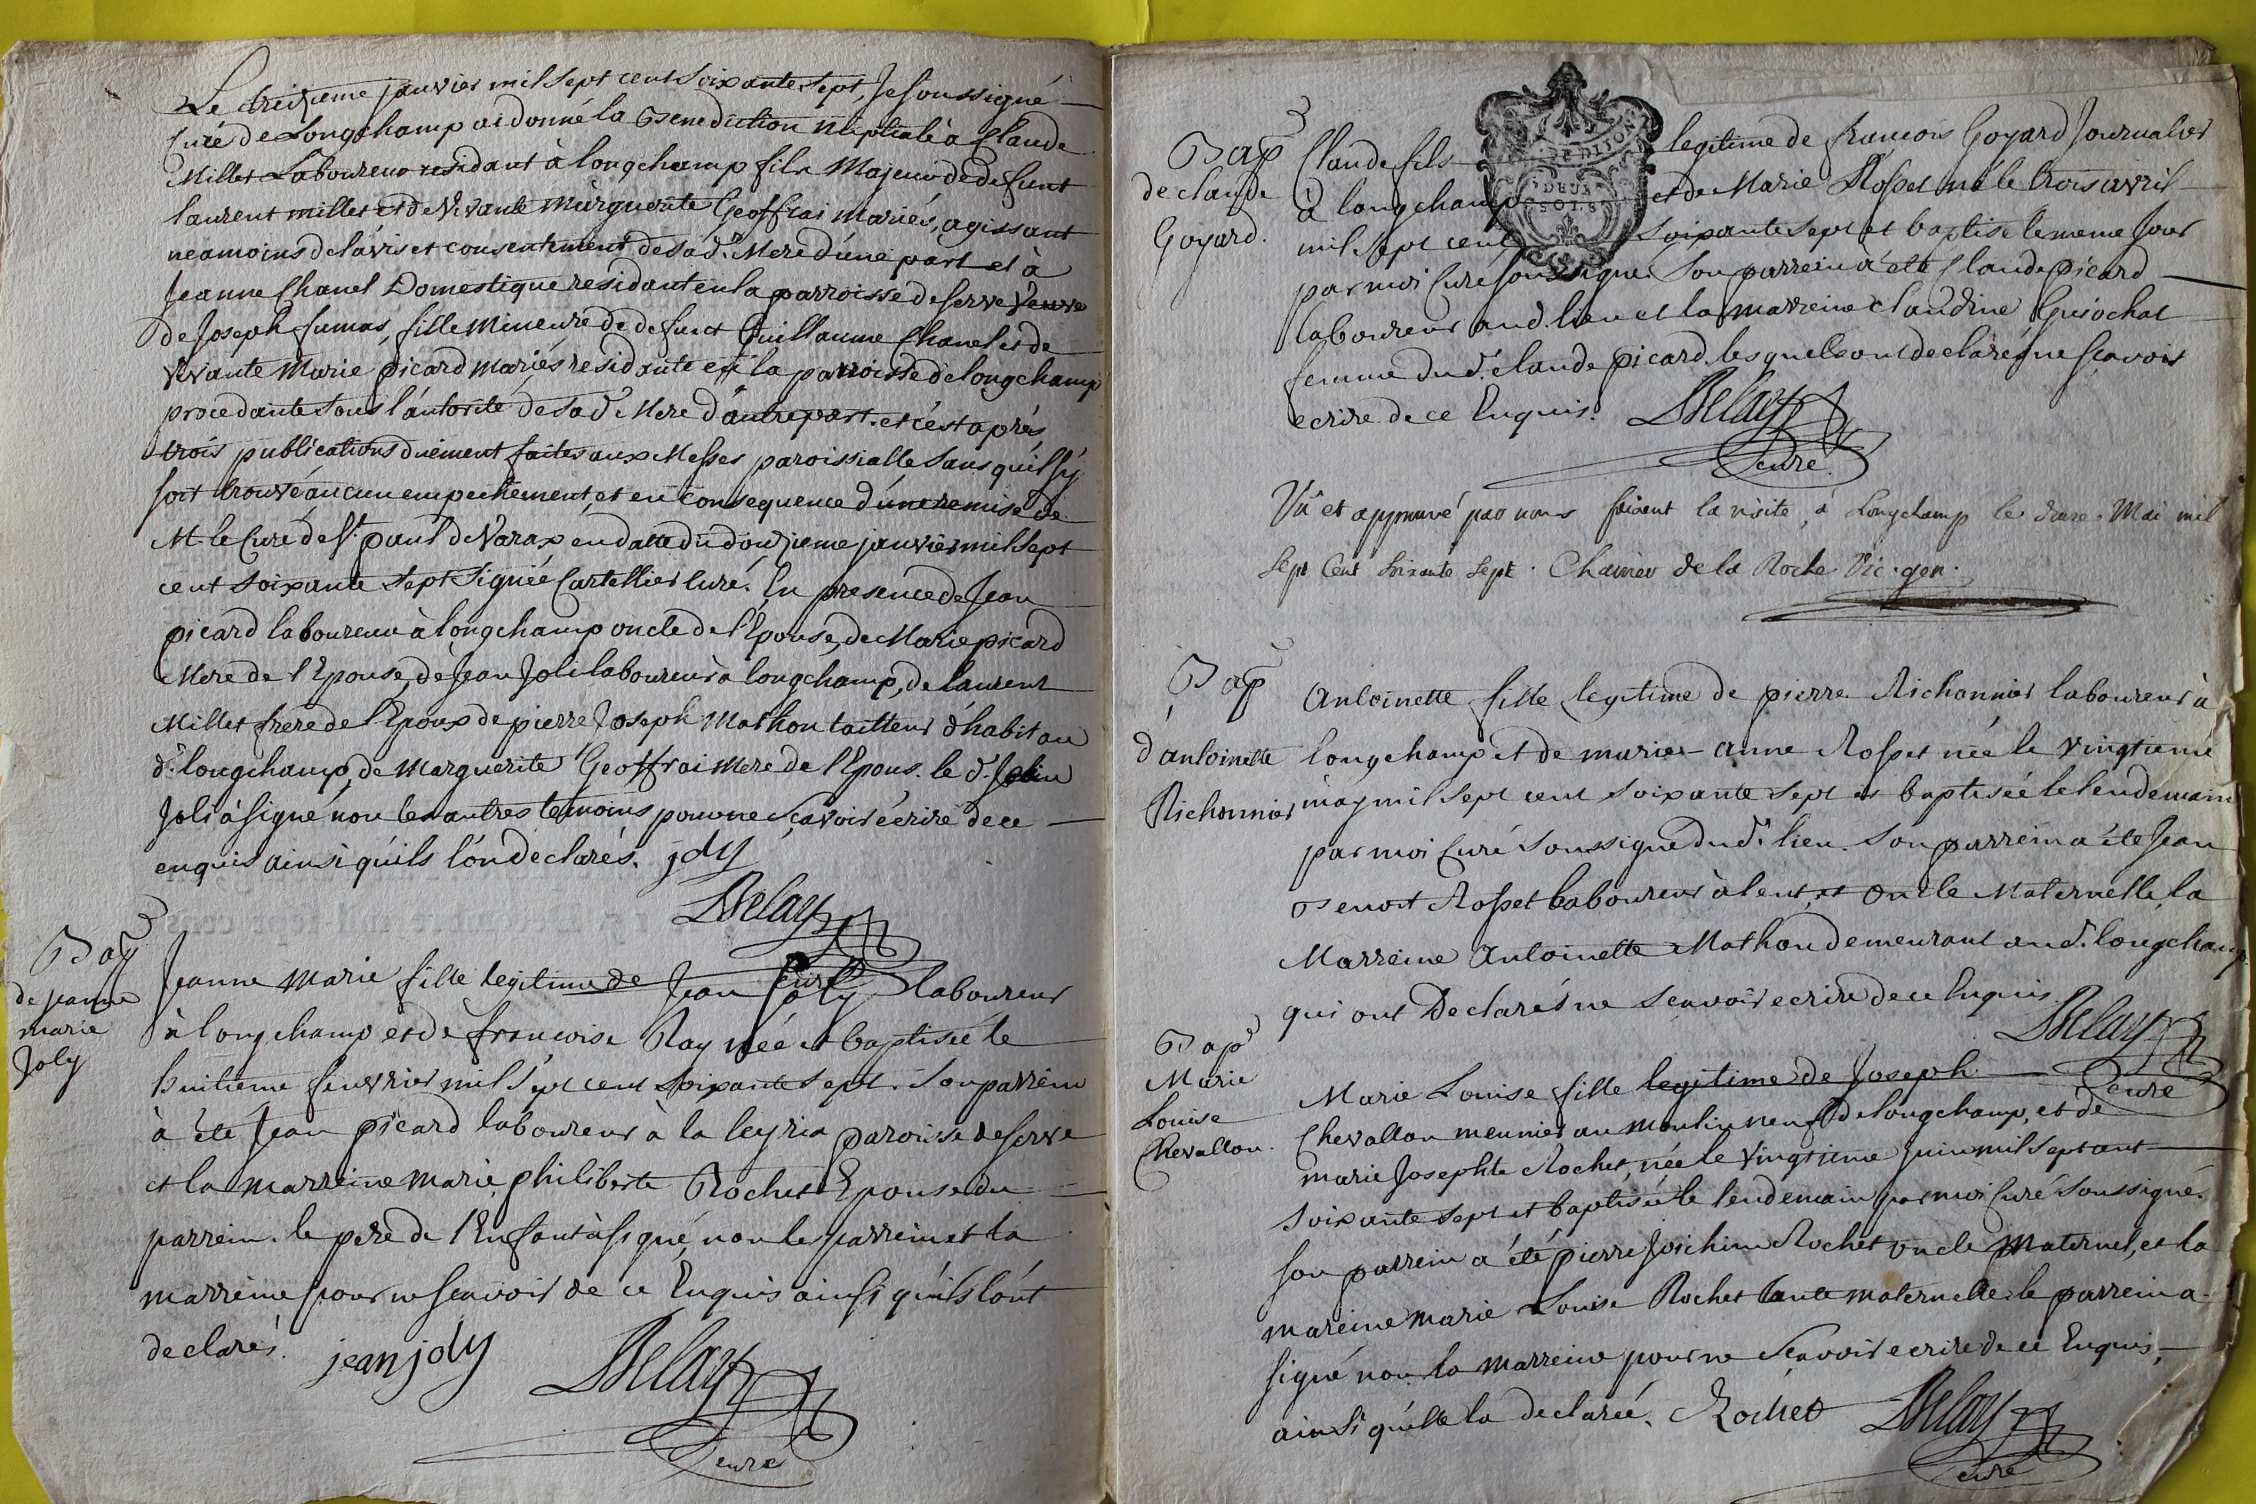 Le treizieme janvier mil sept cent soixante sept, Je soussigné
Curé de Longchamp ai donné la Benediction Nuptiale à Claude
Millet Laboureur residant à longchamp fils Majeur de defunt
laurent millet et de Vivante Marguerite Geoffrai mariés, agissant
neamoins de l'avis et consentement de sa d. Mere d'une part et à
Jeanne Chanel Domestique residant en la parroisse de serve Veuve
de Joseph fumas, fille Mineure de defunt Guillaume Chanel et de
Vivante Marie picard mariés residante en la parroisse de longchamp
procedante sous l'autorité de sa d. Mere d'autre part. et c'est après
trois publications duement faites aux Messes paroissialle sans qu'il s'y
soit trouvé aucun empechement, et en consequence d'une remise de
M. le Curé de St. paul de Varax en datte du douzieme janvier mil sept
cent soixante sept Signée Cartellier Curé. En presence de Jean
picard laboureur à longchamp oncle de l'Epouse, de Marie picard
Mere de l'Epouse, de Jean Joli laboureur à longchamp, de laurent
Millet frere de l'Epoux de pierre Joseph Mathon tailleur d'habit au
d. longchamp, de Marguerite Geoffrai mere de l'Epoux. le d. Jean
Joli à Signé non les autres temoins pour ne Sçavoir écrire de ce
enquis ainsi qu'ils l'on declarés. joly
Delay
curé
Bap
de jeanne
marie
Joly
Jeanne Marie fille legitime de Jean Joly laboureur
à longchamp et de francoise Ray née et baptisée le
huitieme fevrier mil sept cent soixante sept. Son parrein
à été Jean picard laboureur à la leyria paroisse de serve
et la marreine marie philiberte Rochet Epouse du
parrein. le pere de l'Enfant à signé, non le parrein et la
marreine pour ne scavoir de ce Enquis ainsi qu'ils l'ont
declarés. jean joly Delay
curé
Bap
de claude
Goyard.
DIJON
DEUX
SOLS
Claude fils legitime de francois Goyard Journalier
à longchamp et de Marie Rosset né le trois avril
mil sept cent soixante sept et baptisé le meme Jour
par moi Curé soussigné Son parrein a été Claude picard
laboureur aud. lieu et la marreine claudine Guiochat
femme du d. claude picard. lesquels ont declarés ne scavoir
ecrire de ce Enquis. Delay
curé
Vû et approuvé par nous faisant la visite, à Longchamp le Mai mil
Sept Cent Soixante Sept. de la Roche Vic. gen.
Bap
d'antoinette
Richonnier
Antoinette fille legitime de pierre Richonnier laboureur à
longchamp et de marie-anne Rosset née le vingtieme
may mil sept cent soixante sept et baptisée le lendemain
par moi Curé soussigné du d. lieu. Son parrein a été Jean
Benoit Rosset laboureur à lent, et oncle Maternelle, la
Marreine Antoinette Mathon demeurant au d. longchamp
qui ont Declarés ne scavoir ecrire de ce Enquis. Delay
curé
Bap
Marie
Louise
Chevallon.
Marie Louise fille legitime de Joseph
Chevallon meunier au moulin neuf de longchamp, et de
marie Josephte Rochet, née le vingtieme juin mil sept cent
soixante sept et baptisée le lendemain par moi Curé soussigné.
son parrein a été pierre Joichim Rochet oncle maternel, et la
mareine marie Louise Rochet tante maternelle. le parrein a
signé non la marreine pour ne scavoir ecrire de ce Enquis,
ainsi qu'elle la declarée. Rochet Delay
curé